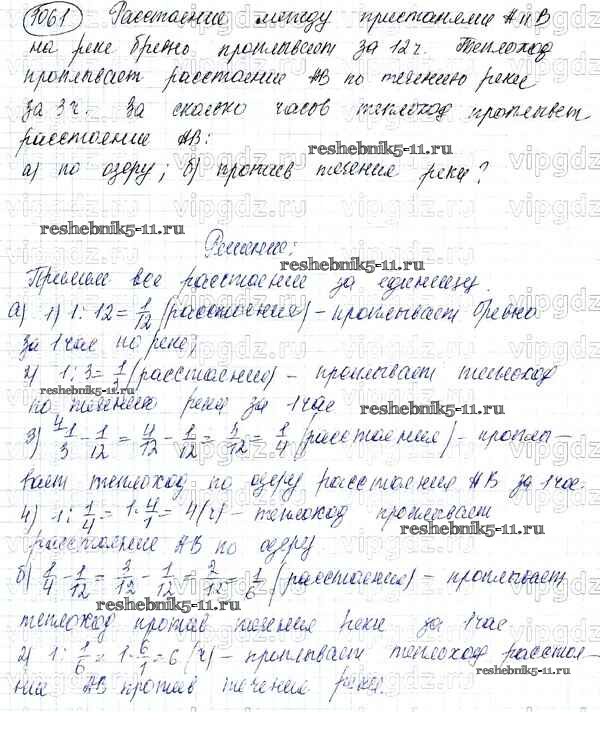 1061 Расстояние между пристанями А и В
на реке бревно проплывает за 12 ч. Теплоход
проплывает расстояние АВ по течению реки
за 3 ч. За сколько часов теплоход проплывет
расстояние АВ:
reshebnik5-11.ru
а) по озеру; б) против течения реки?
reshebnik5-11.ru
Решение:
Примем все расстояние за единицу.
а) 1) 1 : 12 = 1/12 (расстояния) - проплывает бревно
за 1 час по реке;
2) 1 : 3 = 1/3 (расстояния) - проплывает теплоход
reshebnik5-11.ru
по течению реки за 1 час
reshebnik5-11.ru
3) 4 1/3 - 1/12 = 4/12 - 1/12 = 3/12 = 1/4 (расстояния) - проплы-
вает теплоход по озеру расстояния АВ за 1 час.
4) 1 : 1/4 = 1 · 4/1 = 4 (ч) - теплоход проплывает
reshebnik5-11.ru
расстояние АВ по озеру
б) 1/4 - 1/12 = 3/12 - 1/12 = 2/12 = 1/6 (расстояния) - проплывает
reshebnik5-11.ru
теплоход против течения реки за 1 час
2) 1 : 1/6 = 1 · 6/1 = 6 (ч) - проплывает теплоход расстоя-
reshebnik5-11.ru
ние АВ против течения реки.